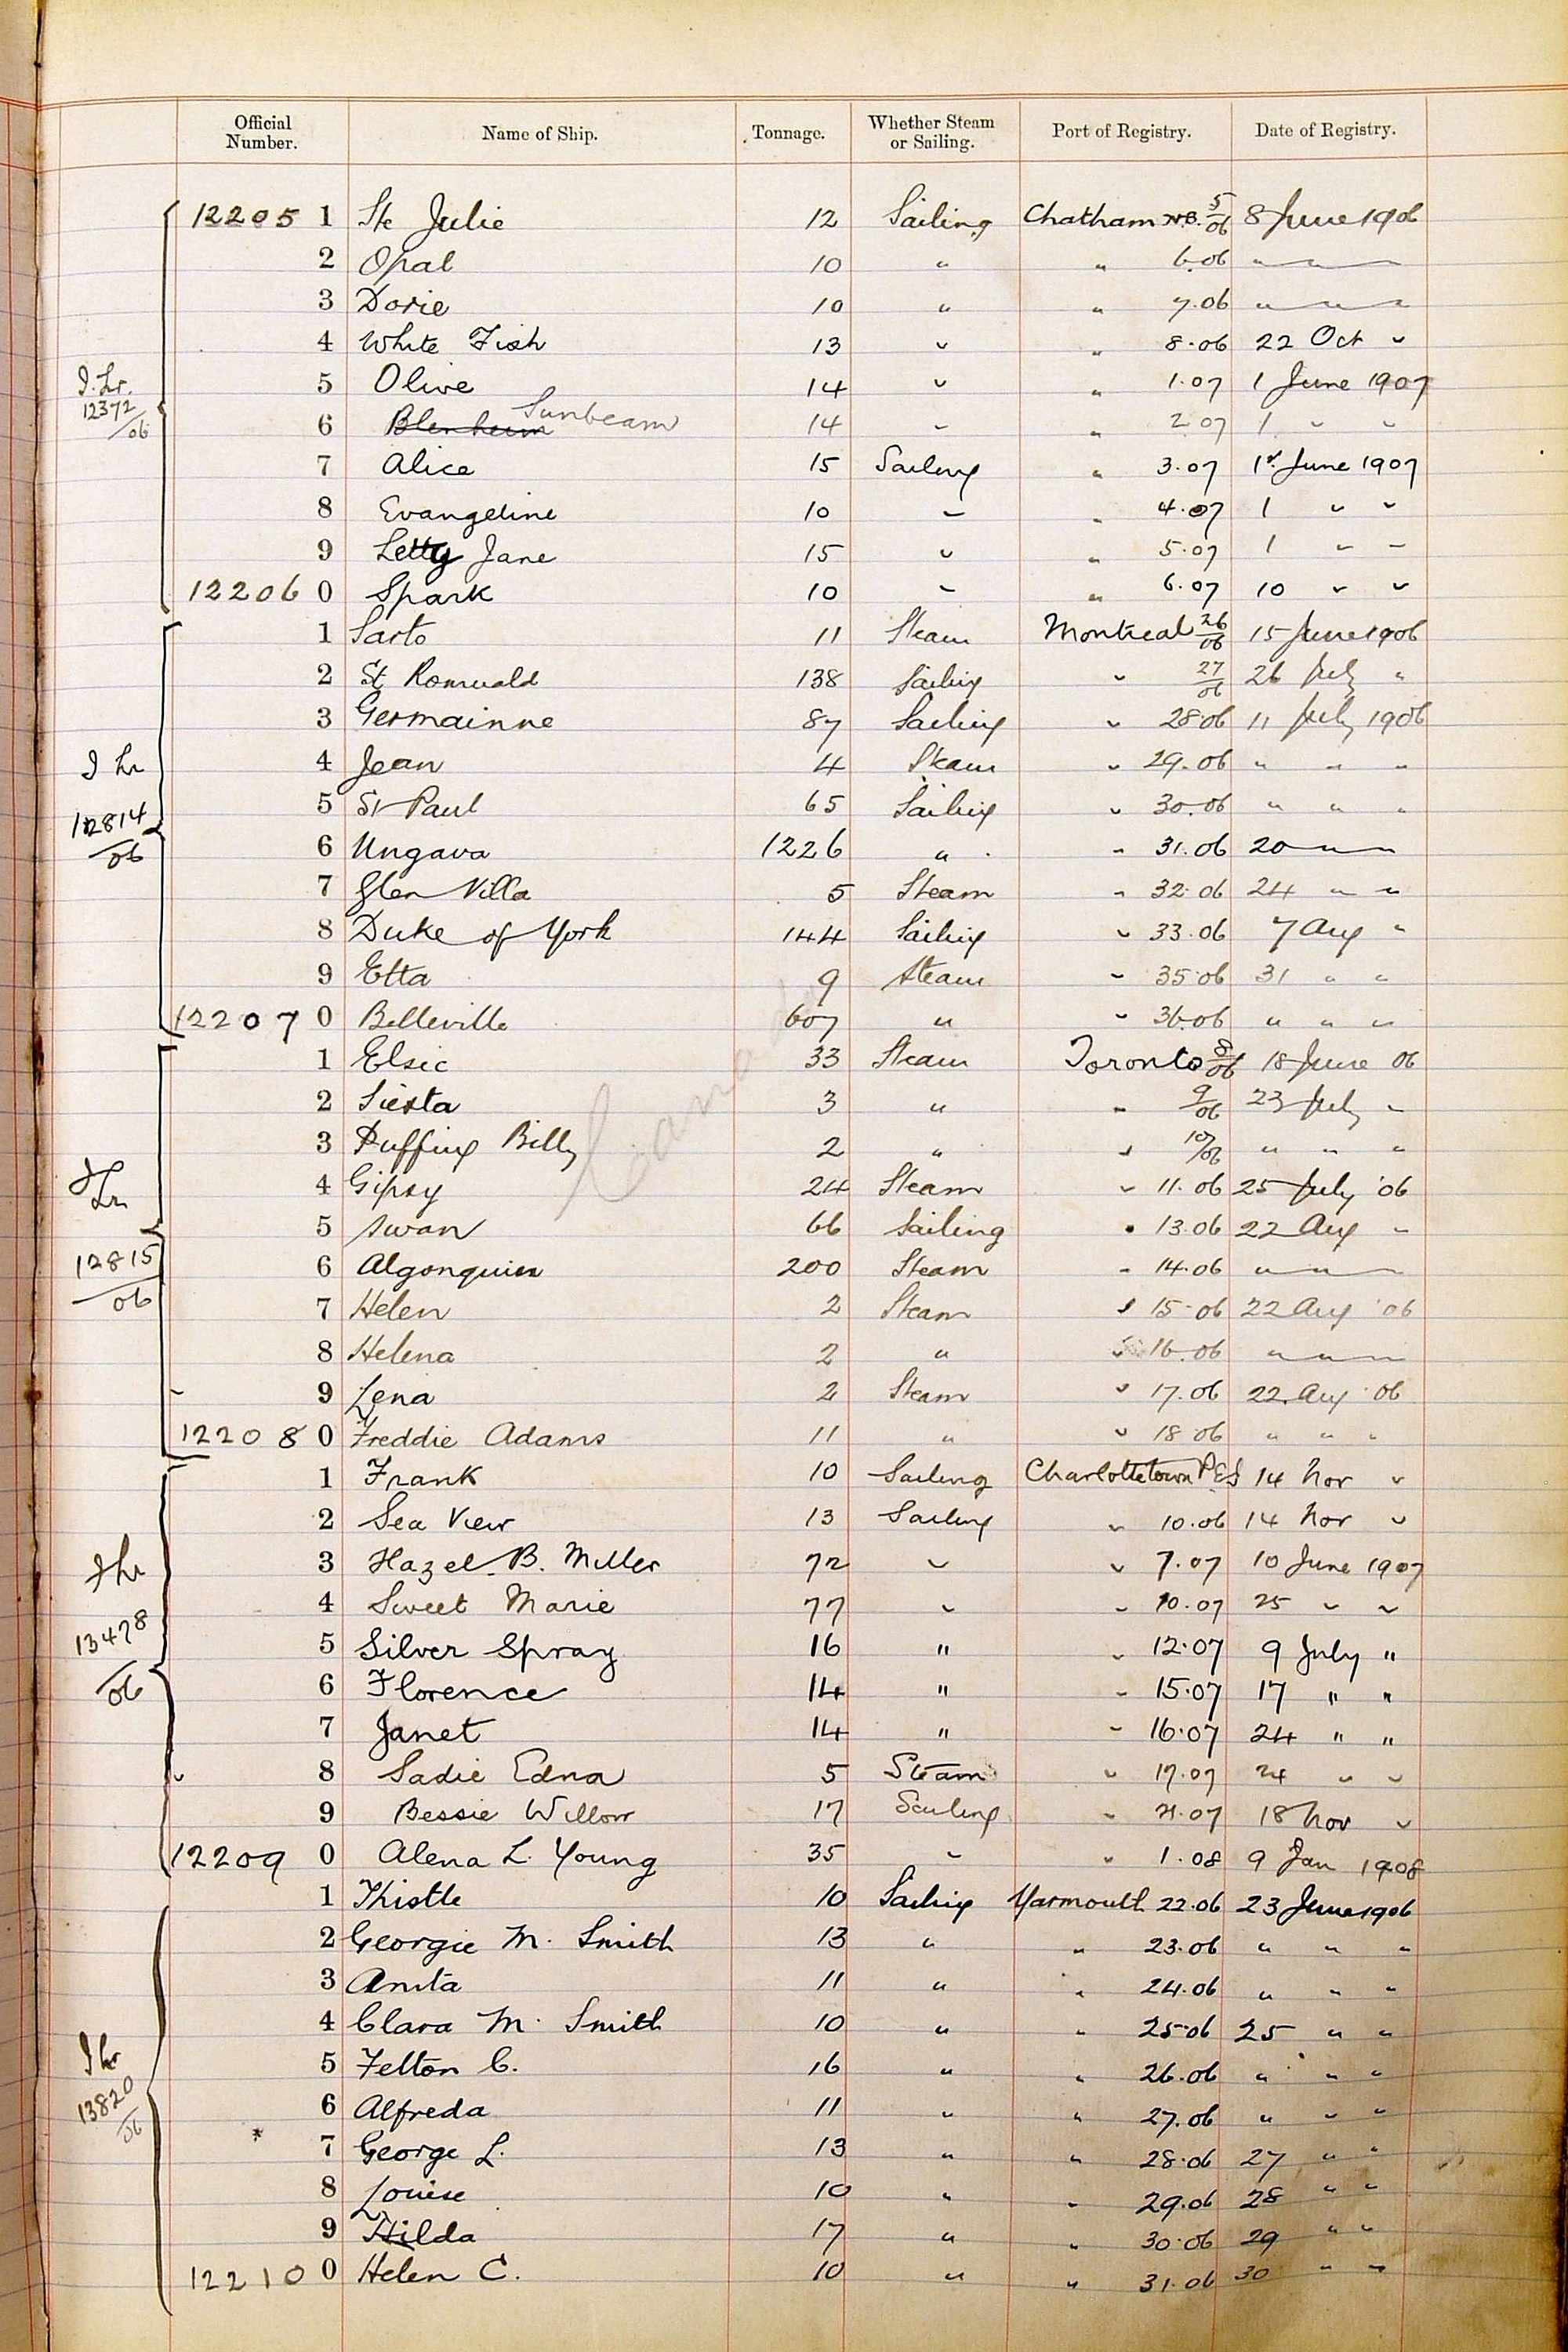 Official Number. Name of Ship. Tonnage. Whether Steam or Sailing. Port of Registry. Date of Registry.
12205 1 Ste Julie 12 Sailing Chatham N.B. 5/06 8 June 1906
2 Opal 10 " " 6.06 " " "
3 Dorie 10 " " 7.06 " " "
4 White Fish 13 " " 8.06 22 Oct "
5 Olive 14 " " 1.07 1 June 1907
6 Blenheim Sunbeam 14 " " 2.07 1 " "
7 Alice 15 Sailing " 3.07 1st June 1907
8 Evangeline 10 " " 4.07 1 " "
9 Letty Jane 15 " " 5.07 1 " "
12206 0 Spark 10 " " 6.07 10 " "
12372/06
1 Sarto 11 Steam Montreal 26/06 15 June 1906
2 St Romuald 138 Sailing " 27/06 26 July "
3 Germainne 87 Sailing " 28.06 11 July 1906
4 Jean 4 Steam " 29.06 " " "
5 St Paul 65 Sailing " 30.06 " " "
6 Ungava 1226 " " 31.06 20 " "
7 Glen Villa 5 Steam " 32.06 24 " "
8 Duke of York 144 Sailing " 33.06 7 Aug "
9 Etta 9 Steam " 35.06 31 " "
12207 0 Belleville 607 " " 36.06 " " "
12814/06
1 Elsie 33 Steam Toronto 8/06 18 June 06
2 Siesta 3 " " 9/06 23 July "
3 Puffing Billy 2 " " 10/06 " " "
4 Gipsy 24 Steam " 11.06 25 July '06
5 Swan 66 Sailing " 13.06 22 Aug "
6 Algonquin 200 Steam " 14.06 " " "
7 Helen 2 Steam " 15.06 22 Aug '06
8 Helena 2 " " 16.06 " " "
9 Lena 2 Steam " 17.06 22 Aug '06
12208 0 Freddie Adams 11 " " 18.06 " " "
12815/06
Canada
1 Frank 10 Sailing Charlottetown P.E.I 14 Nov "
2 Sea View 13 Sailing " 10.06 14 Nov "
3 Hazel B. Miller 72 " " 7.07 10 June 1907
4 Sweet Marie 77 " " 10.07 25 " "
5 Silver Spray 16 " " 12.07 9 July "
6 Florence 14 " " 15.07 17 " "
7 Janet 14 " " 16.07 24 " "
8 Sadie Edna 5 Steam " 17.07 24 " "
9 Bessie Willow 17 Sailing " 21.07 18 Nov "
12209 0 Alena L. Young 35 " " 1.08 9 Jan 1908
13478/06
1 Thistle 10 Sailing Yarmouth 22.06 23 June 1906
2 Georgie M. Smith 13 " " 23.06 " " "
3 Anita 11 " " 24.06 " " "
4 Clara M. Smith 10 " " 25.06 25 " "
5 Felton C. 16 " " 26.06 " " "
6 Alfreda 11 " " 27.06 " " "
7 George L. 13 " " 28.06 27 " "
8 Louise 10 " " 29.06 28 " "
9 Hilda 17 " " 30.06 29 " "
12210 0 Helen C. 10 " " 31.06 30 " "
13820/06